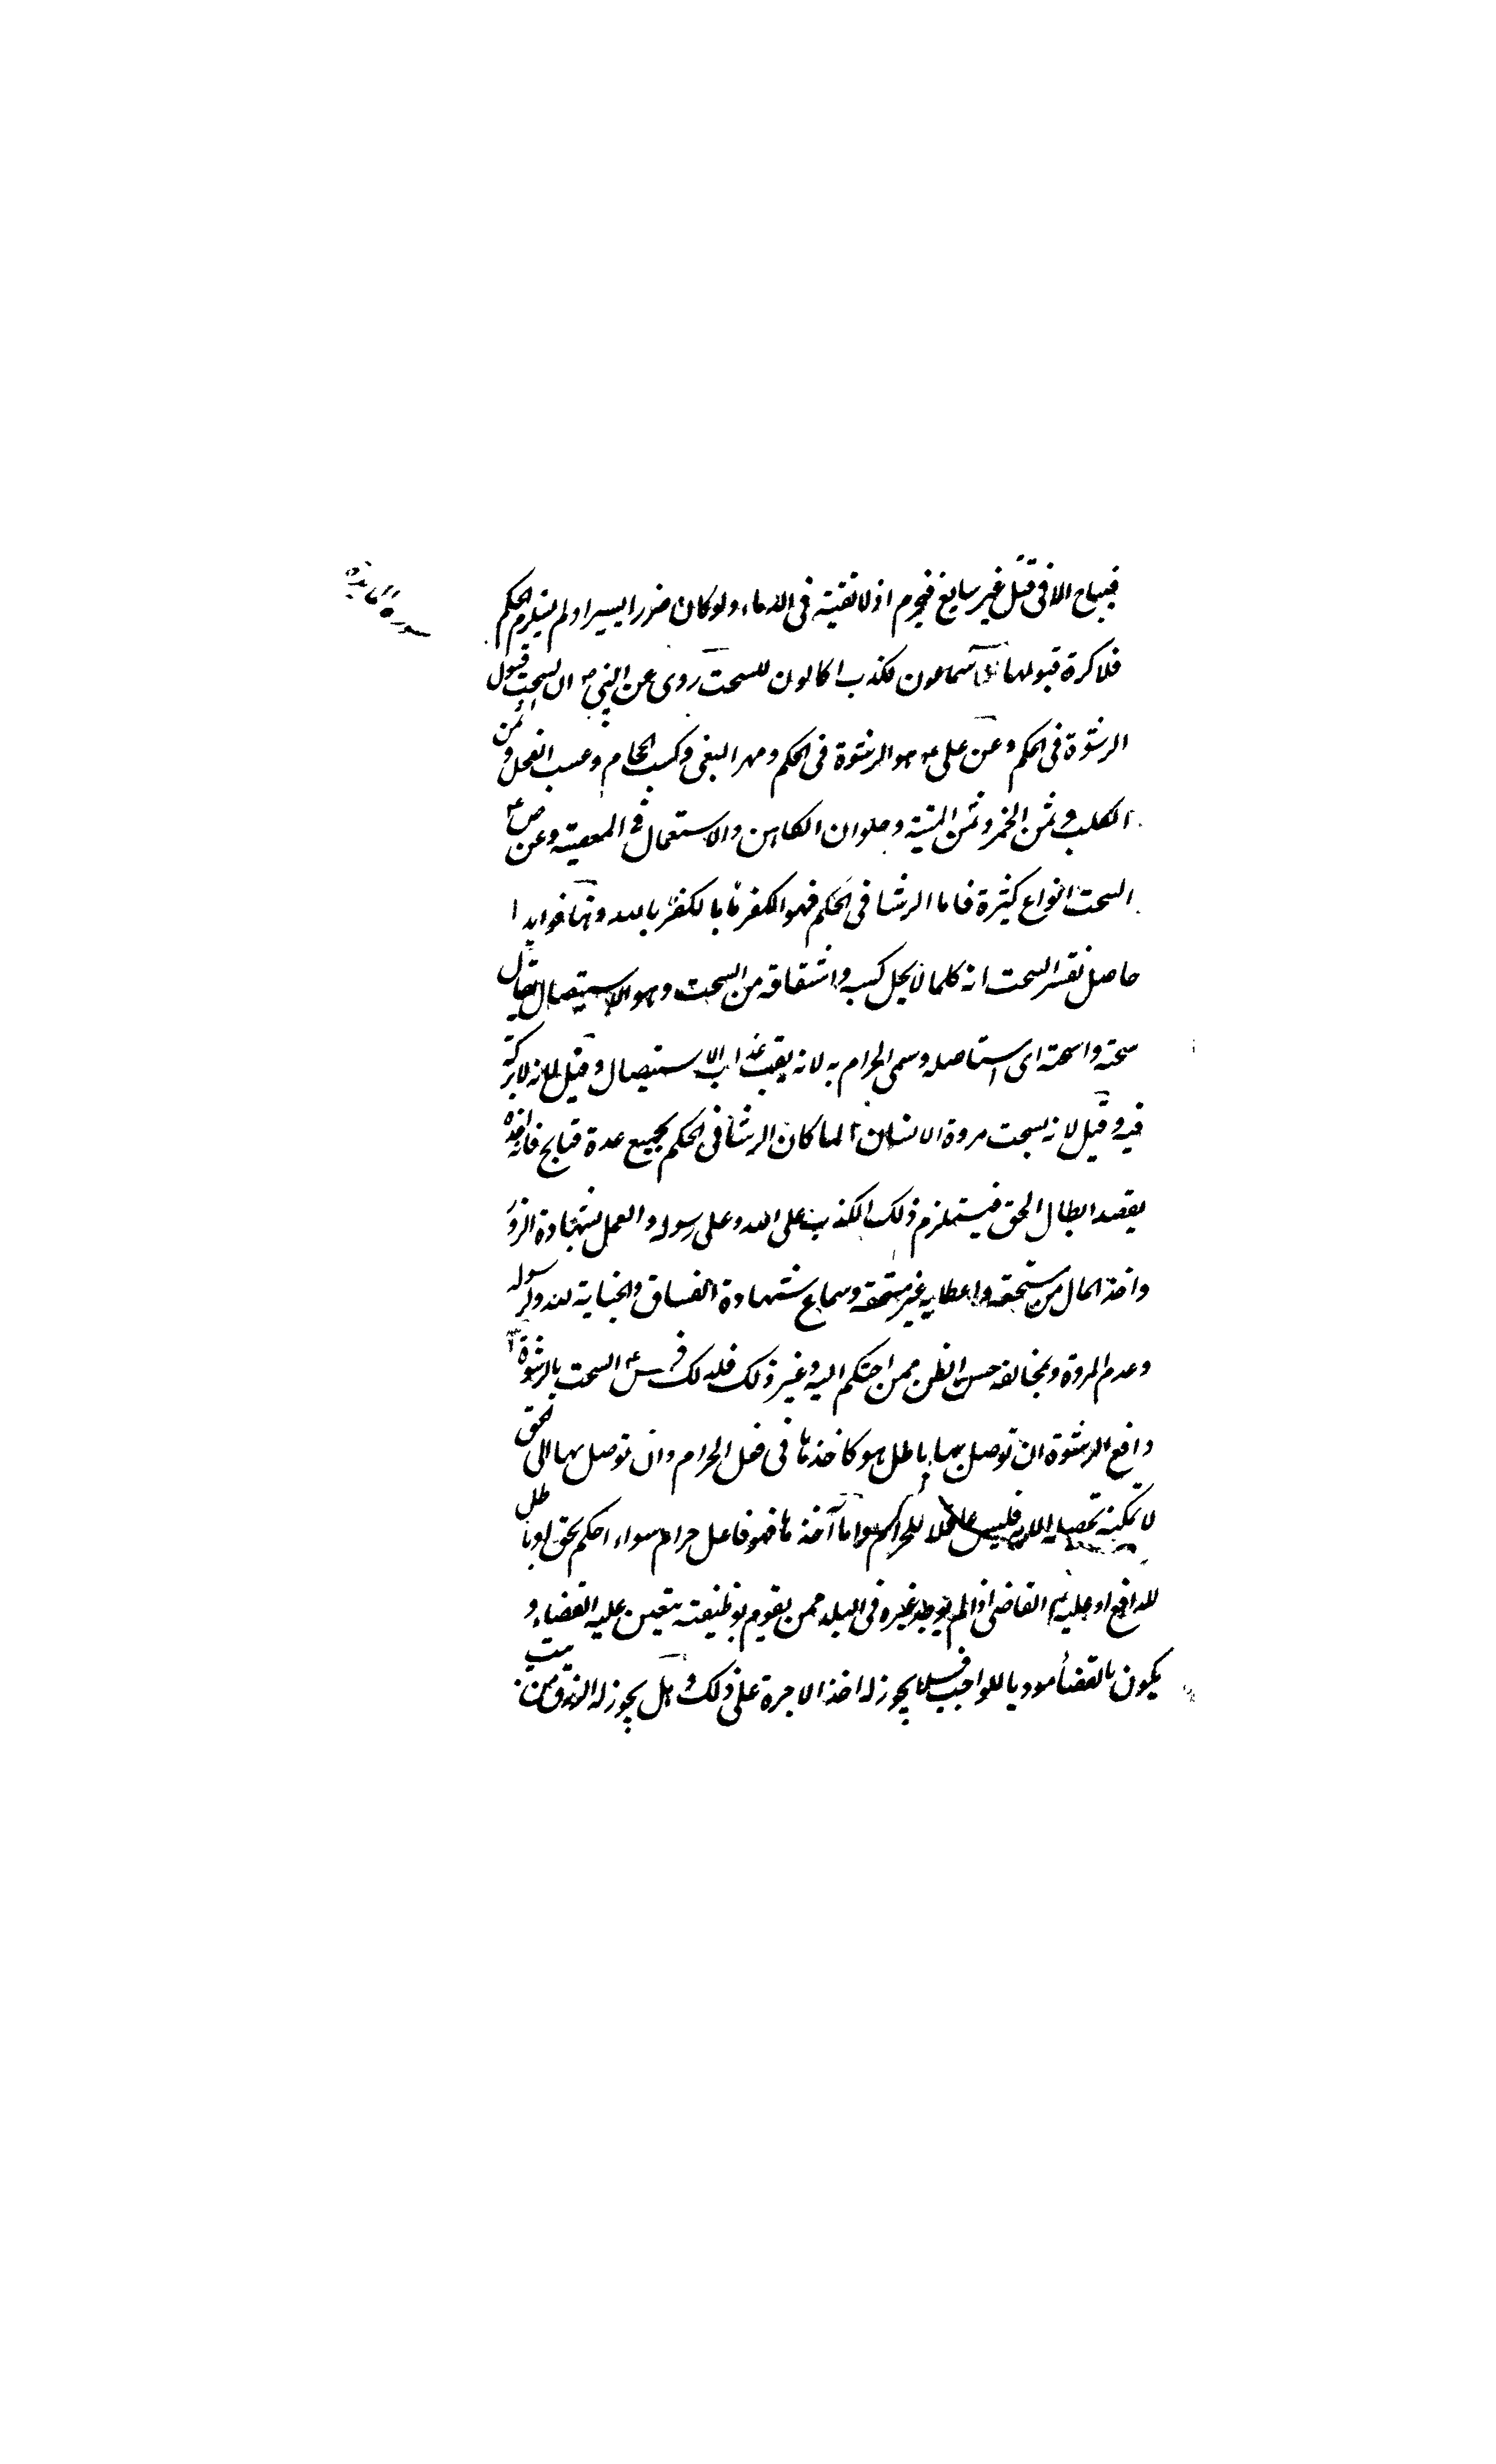 فيباح الا فى قتل غير سايغ فيحرم اذ لا تقية فى الدماء ولو كان ضررا يسيرا ولم يلزم الحكم
فلا كرة قبولها سماعون للكذب اكالون للسحت روى عن النبي ص ان السحت قبول
الرشوة فى الحكم وعن على ع هو الرشوة فى الحكم ومهر البغى وكسب الحجام وعسب الفحل وثمن
الكلب وثمن الخمر وثمن الميتة وحلوان الكاهن والاستعمال فى المعصية وعن ص ع
السحت انواع كثيرة فاما الرشا فى الحكم فهو الكفر بالله وهنا فوايد ا
حاصل تفسير السحت انه كلما لا يحل كسبه واشتقاقه من السحت وهو الاستيصال يقال
سحته واسحته اى استاصله وسمى الحرام به لانه يعقب عذاب الاستيصال وقيل لانه لا بركة
فيه وقيل لانه يسحت مروة الانسان ٢ لما كان الرشا فى الحكم يجمع عدة قبايح فانه اخذه
يقصد ابطال الحق فيستلزم ذلك الكذب على الله وعلى رسوله والعمل بشهادة الزور
واخذ المال من مستحقه واعطايه غير مستحقه وسماع شهادة الفساق والخيانة لله ولرسوله
وعدم المروة ومخالفة حسن الظن ممن احتكم اليه وغير ذلك فلذلك فسر ع السحت بالرشوة ٣
دافع الرشوة ان توصل بها باطل هو كاخذها فى فعل الحرام وان توصل بها الى حق
لا يمكنه تحصيله الا به فليس فاعلا للحرام واما آخذها فهو فاعل حرام سواء احكم بحق او باطل
للدافع او عليه ٤ القاضى اذا لم يوجد غيره فى البلد ممن يقوم بوظيفته يتعين عليه القضاء و
يكون بالقضأ موديا للواجب فلا يجوز له اخذ الاجرة على ذلك وهل يجوز له الرزق من بيت